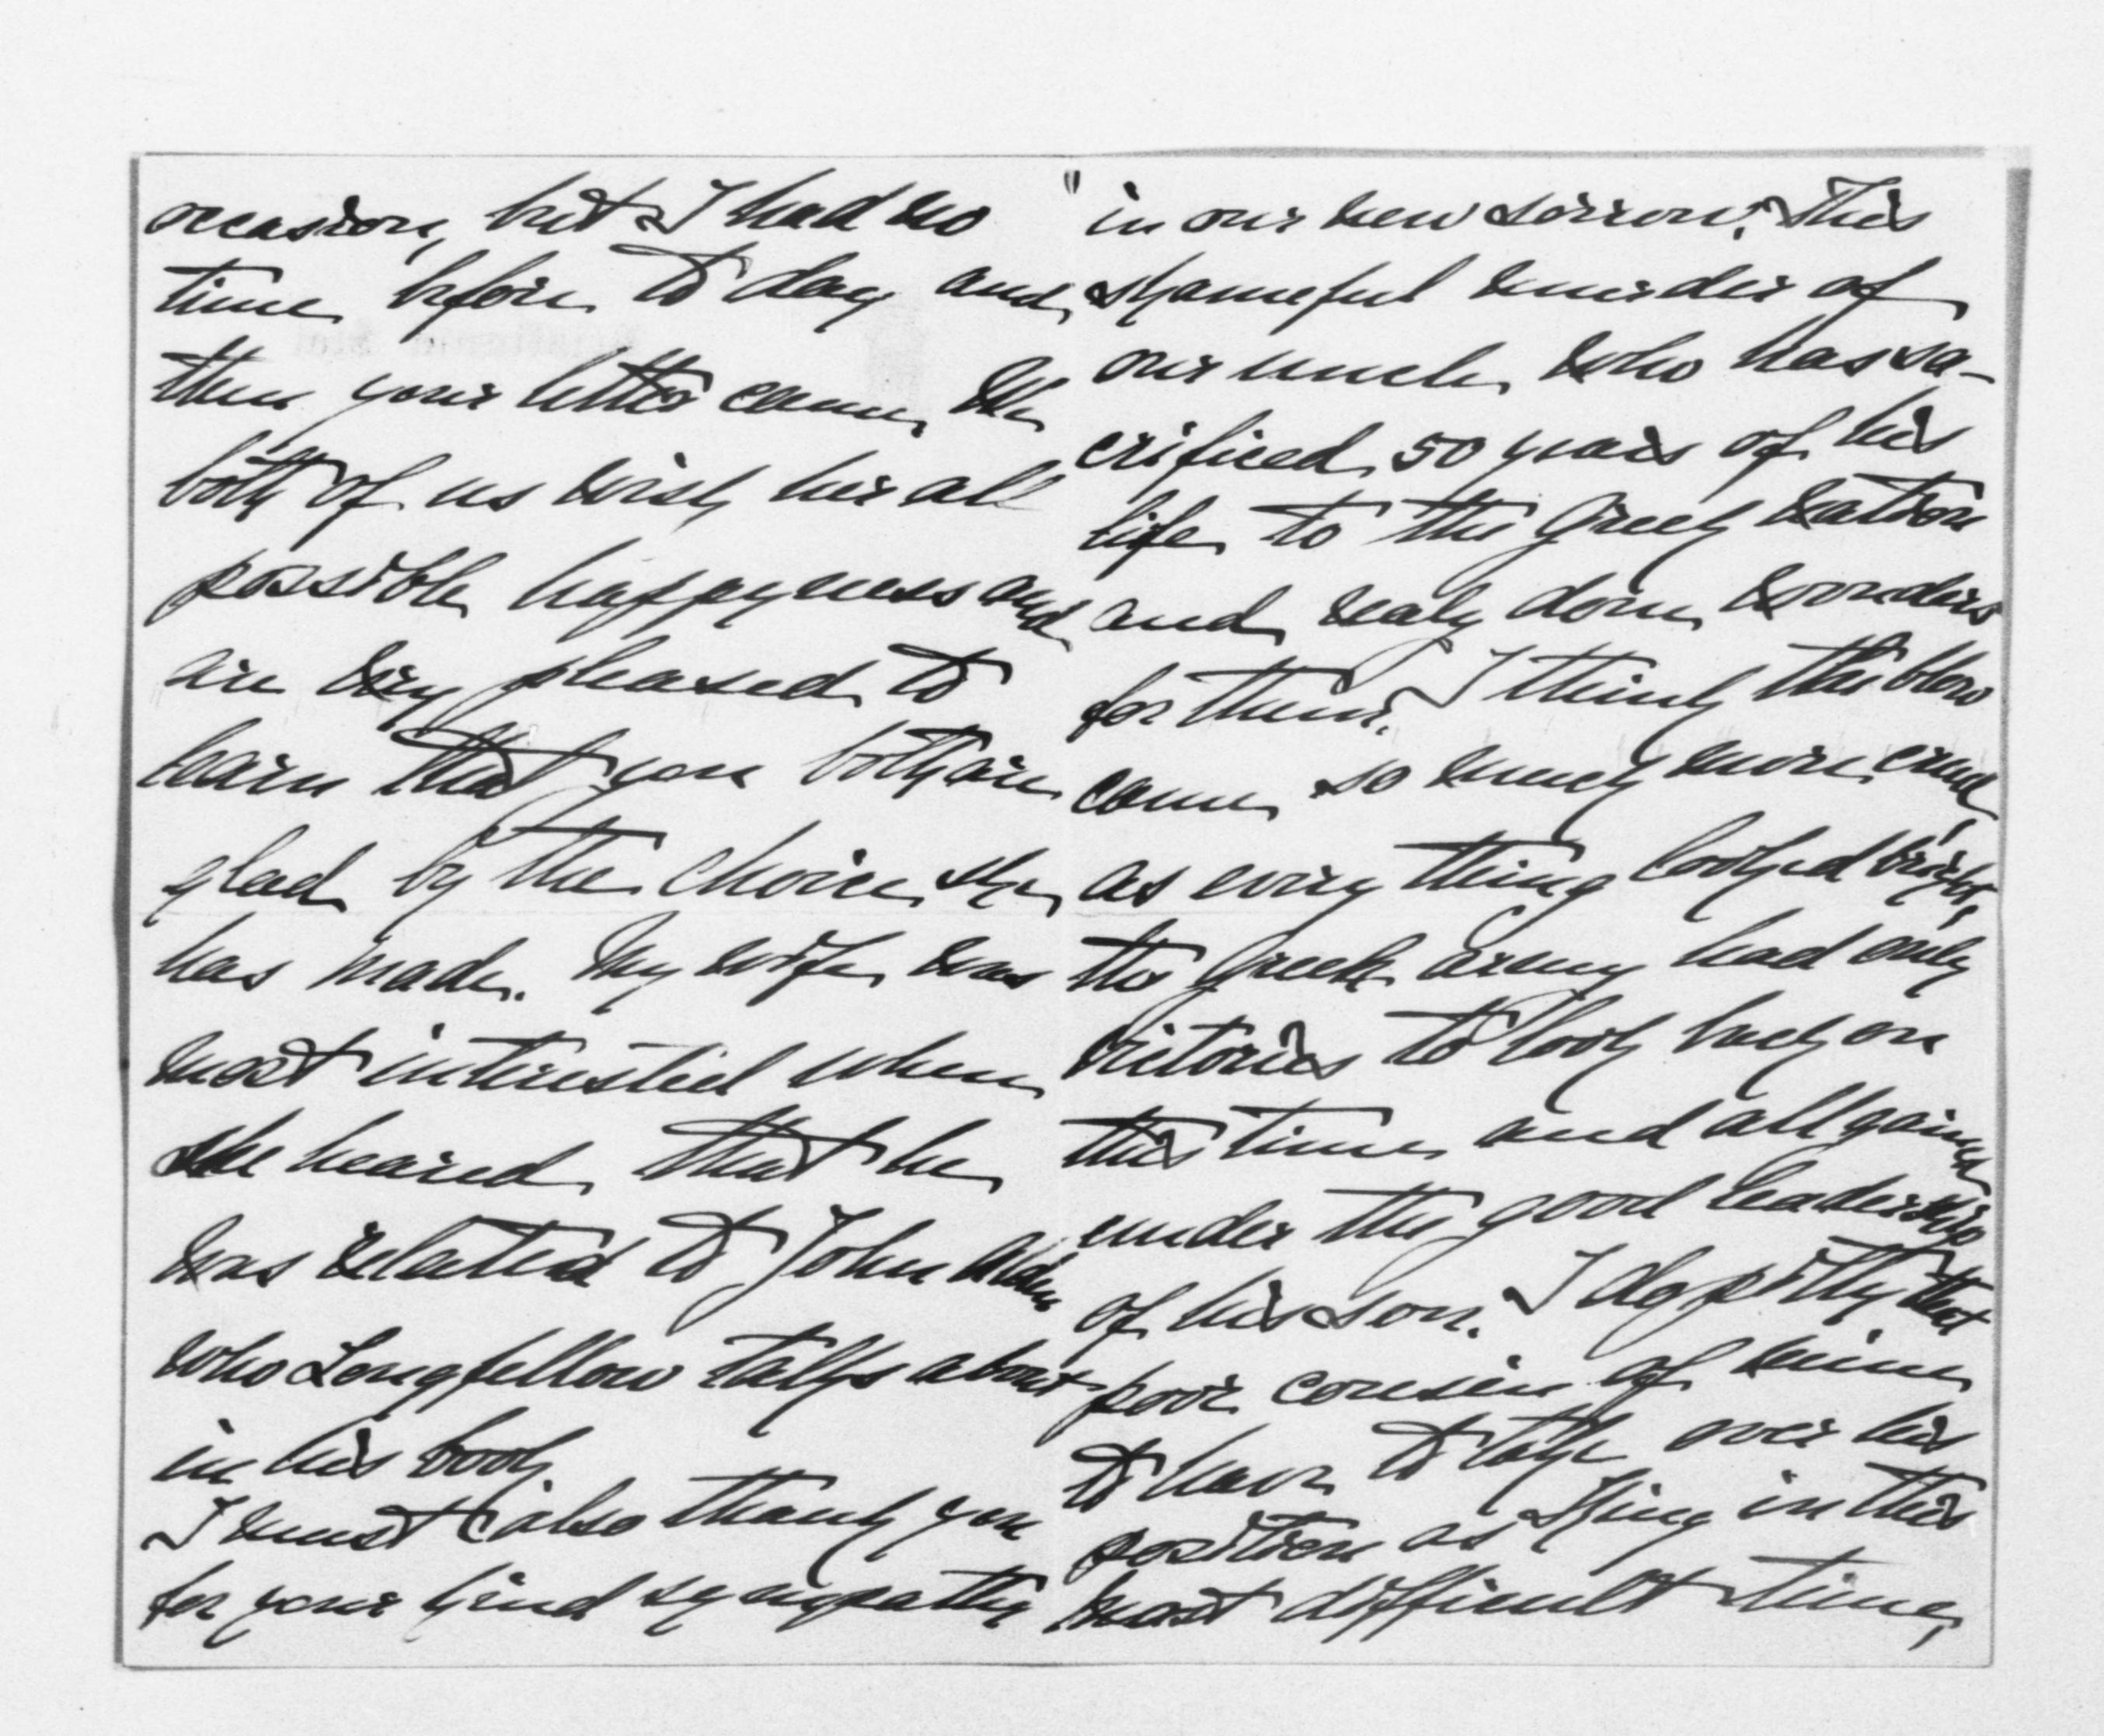 occasion, but I had no
time before to day and
then your letter came. We
both of us wish her all
possible happyness and
are very pleased to
learn that you both are
glad by the choice she
has made. My wife was
most interested when
she heared that he
was related to John Alden
who Longfellow talks about
in his book.
I must also thank you
for your kind sympathy
in our new sorrow. This
shameful murder of
our uncle who has sa-
crificed 50 years of his
life to the Greek nation
and realy done wonders
for them. I think this blow
came so much more cruel,
as every thing looked bright,
the Greek army had only
victories to look back on
this time and all gained
under the good leadership
of his son. I do pitty that
poor cousin of mine
to have to take over his
position as King in this
most difficult time,